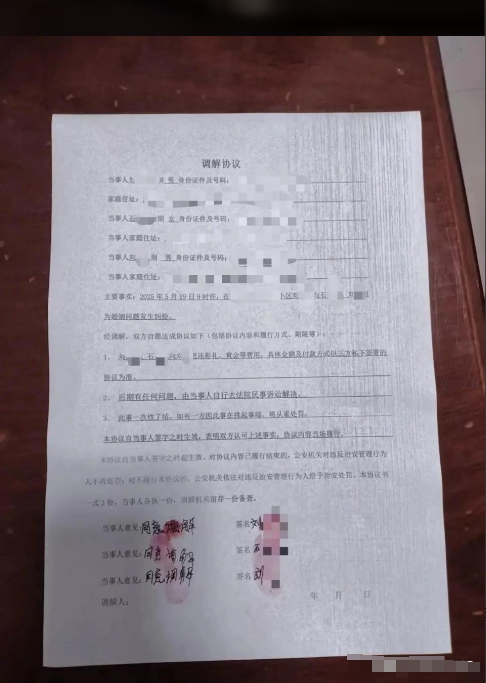 调解协议
当事人 男 身份证件及号码:
家庭住址:
当事人 别 女 身份证件及号码:
当事人家庭住址:
当事人 别 男 身份证件及号码:
当事人家庭住址:
主要事实: 2025年5月19日9时许, 在 小区 与石 刘
为婚姻问题发生纠纷。
经调解, 双方自愿达成协议如下(包括协议内容和履行方式、期限等):
1、 石 退还彩礼、黄金等费用, 具体金额及付款方式以三方私下签署的
协议为准。
2、后期有任何问题, 由当事人自行去法院民事诉讼解决。
3、此事一次性了结, 如有一方因此事在挑起事端, 将从重处罚。
本协议自当事人签字之时生效, 表明双方认可上述事实, 协议内容当场履行。
本协议自当事人签字之时起生效。对协议内容已履行结束的, 公安机关对违反治安管理行为
人不再处罚; 对不履行本协议的, 公安机关依法对违反治安管理行为人给予治安处罚。本协议书
一式3份, 当事人各执一份, 调解机关留存一份备案。
当事人意见: 同意调解 签名 刘
当事人意见: 同意调解 签名 石
当事人意见: 同意调解 签名 刘
调解人: 年 月 日